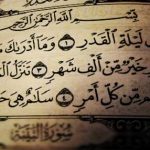 بِسْمِ ٱللَّهِ ٱلرَّحْمَٰنِ ٱلرَّحِيمِ
لَيْلَةِ ٱلْقَدْرِ ١ وَمَآ أَدْرَىٰكَ
خَيْرٌ مِّنْ أَلْفِ شَهْرٍ ٣ تَنَزَّلُ
مِّن كُلِّ أَمْرٍ ٤ سَلَٰمٌ هِىَ
سُورَةُ